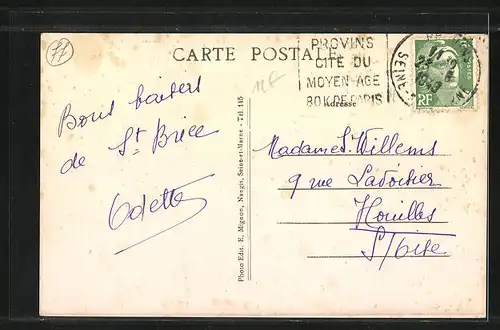 ff
CARTE POSTALE
PROVINS
CITÉ DU
MOYEN-AGE
80K DE PARIS
Adresse
SEINE
1949
RF
12F
Bons baisers
de St Brice
Odette
Madame S. Willems
9 rue Lavoisier
Houilles
S/Oise
Photo Edit. E. Mignon, Nangis, Seine-et-Marne - Tél. 145